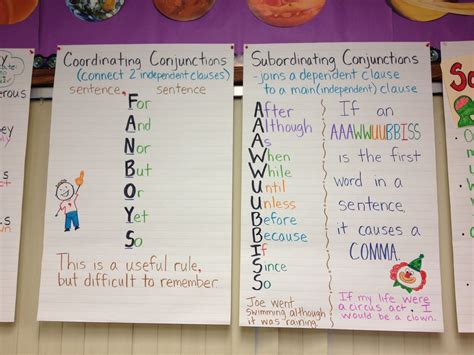 Coordinating Conjunctions
(connect 2 independent clauses)
sentence, sentence
For
And
Nor
But
Or
Yet
So
F
A
N
B
O
Y
S
This is a useful rule,
but difficult to remember.
Subordinating Conjunctions
-joins a dependent clause
to a main(independent) clause
A
A
A
W
W
U
U
B
B
I
S
S
After
Although
As
When
While
Until
Unless
Before
Because
If
Since
So
Joe went
swimming although
it was "raining"
If an
AAAWWUUBBISS
is the first
word in a
sentence,
it causes a
COMMA.
If my life were
a circus act, I
would be a clown.